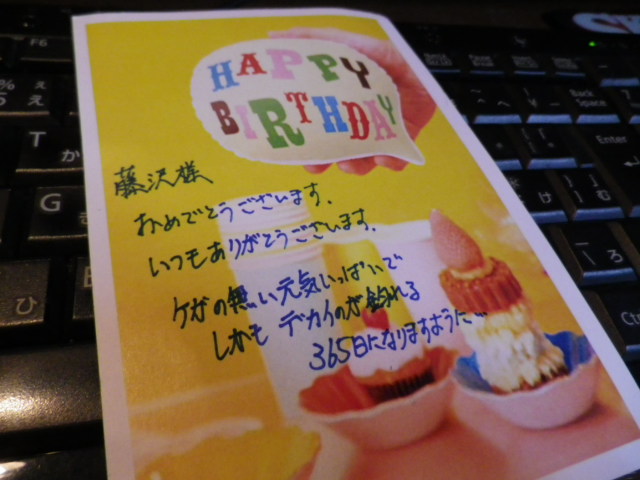 HAPPY
BIRTHDAY
藤沢様
おめでとうございます。
いつもありがとうございます。
ケガの無い元気いっぱいで
しかも デカイのが釣れる
365日になりますように
F6
Back
Space
Enter
Ctrl
T
か
G
き
ひ
え
け
む
ろ